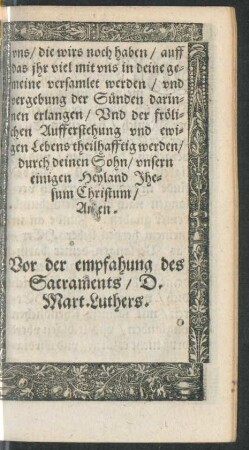 vns/ die wirs noch haben/ auff
das jhr viel mit vns in deine ge-
meine versamlet werden/ vnd
vergebung der Sünden darin-
nen erlangen/ Vnd der fröli-
chen Aufferstehung vnd ewi-
gen Lebens theilhafftig werden/
durch deinen Sohn/ vnsern
einigen Heyland Jhe-
sum Christum/
Amen.
Vor der empfahung des
Sacraments/ D.
Mart. Luthers.